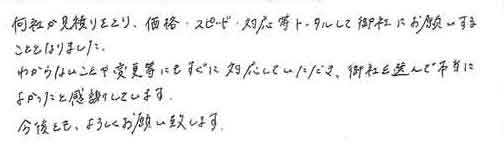 何社か見積りをとり、価格・スピード・対応等トータルして御社にお願いする
こととなりました。
わからないことや変更等にもすぐに対応していただき、御社を選んで本当に
よかったと感謝しています。
今後とも、よろしくお願い致します。